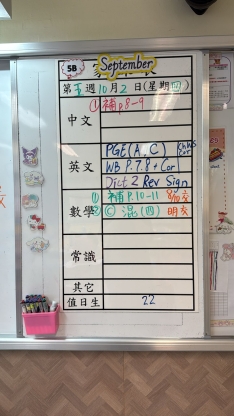 5B
September
第五週10月2日(星期四)
中文
①補p.8-9
英文
PGE(A, C)
WB P.7.8 + Cor
Dict 2 Rev Sign
數學
①補P.10-11 8/10交
②©混(四) 明交
常識
其它
值日生
22